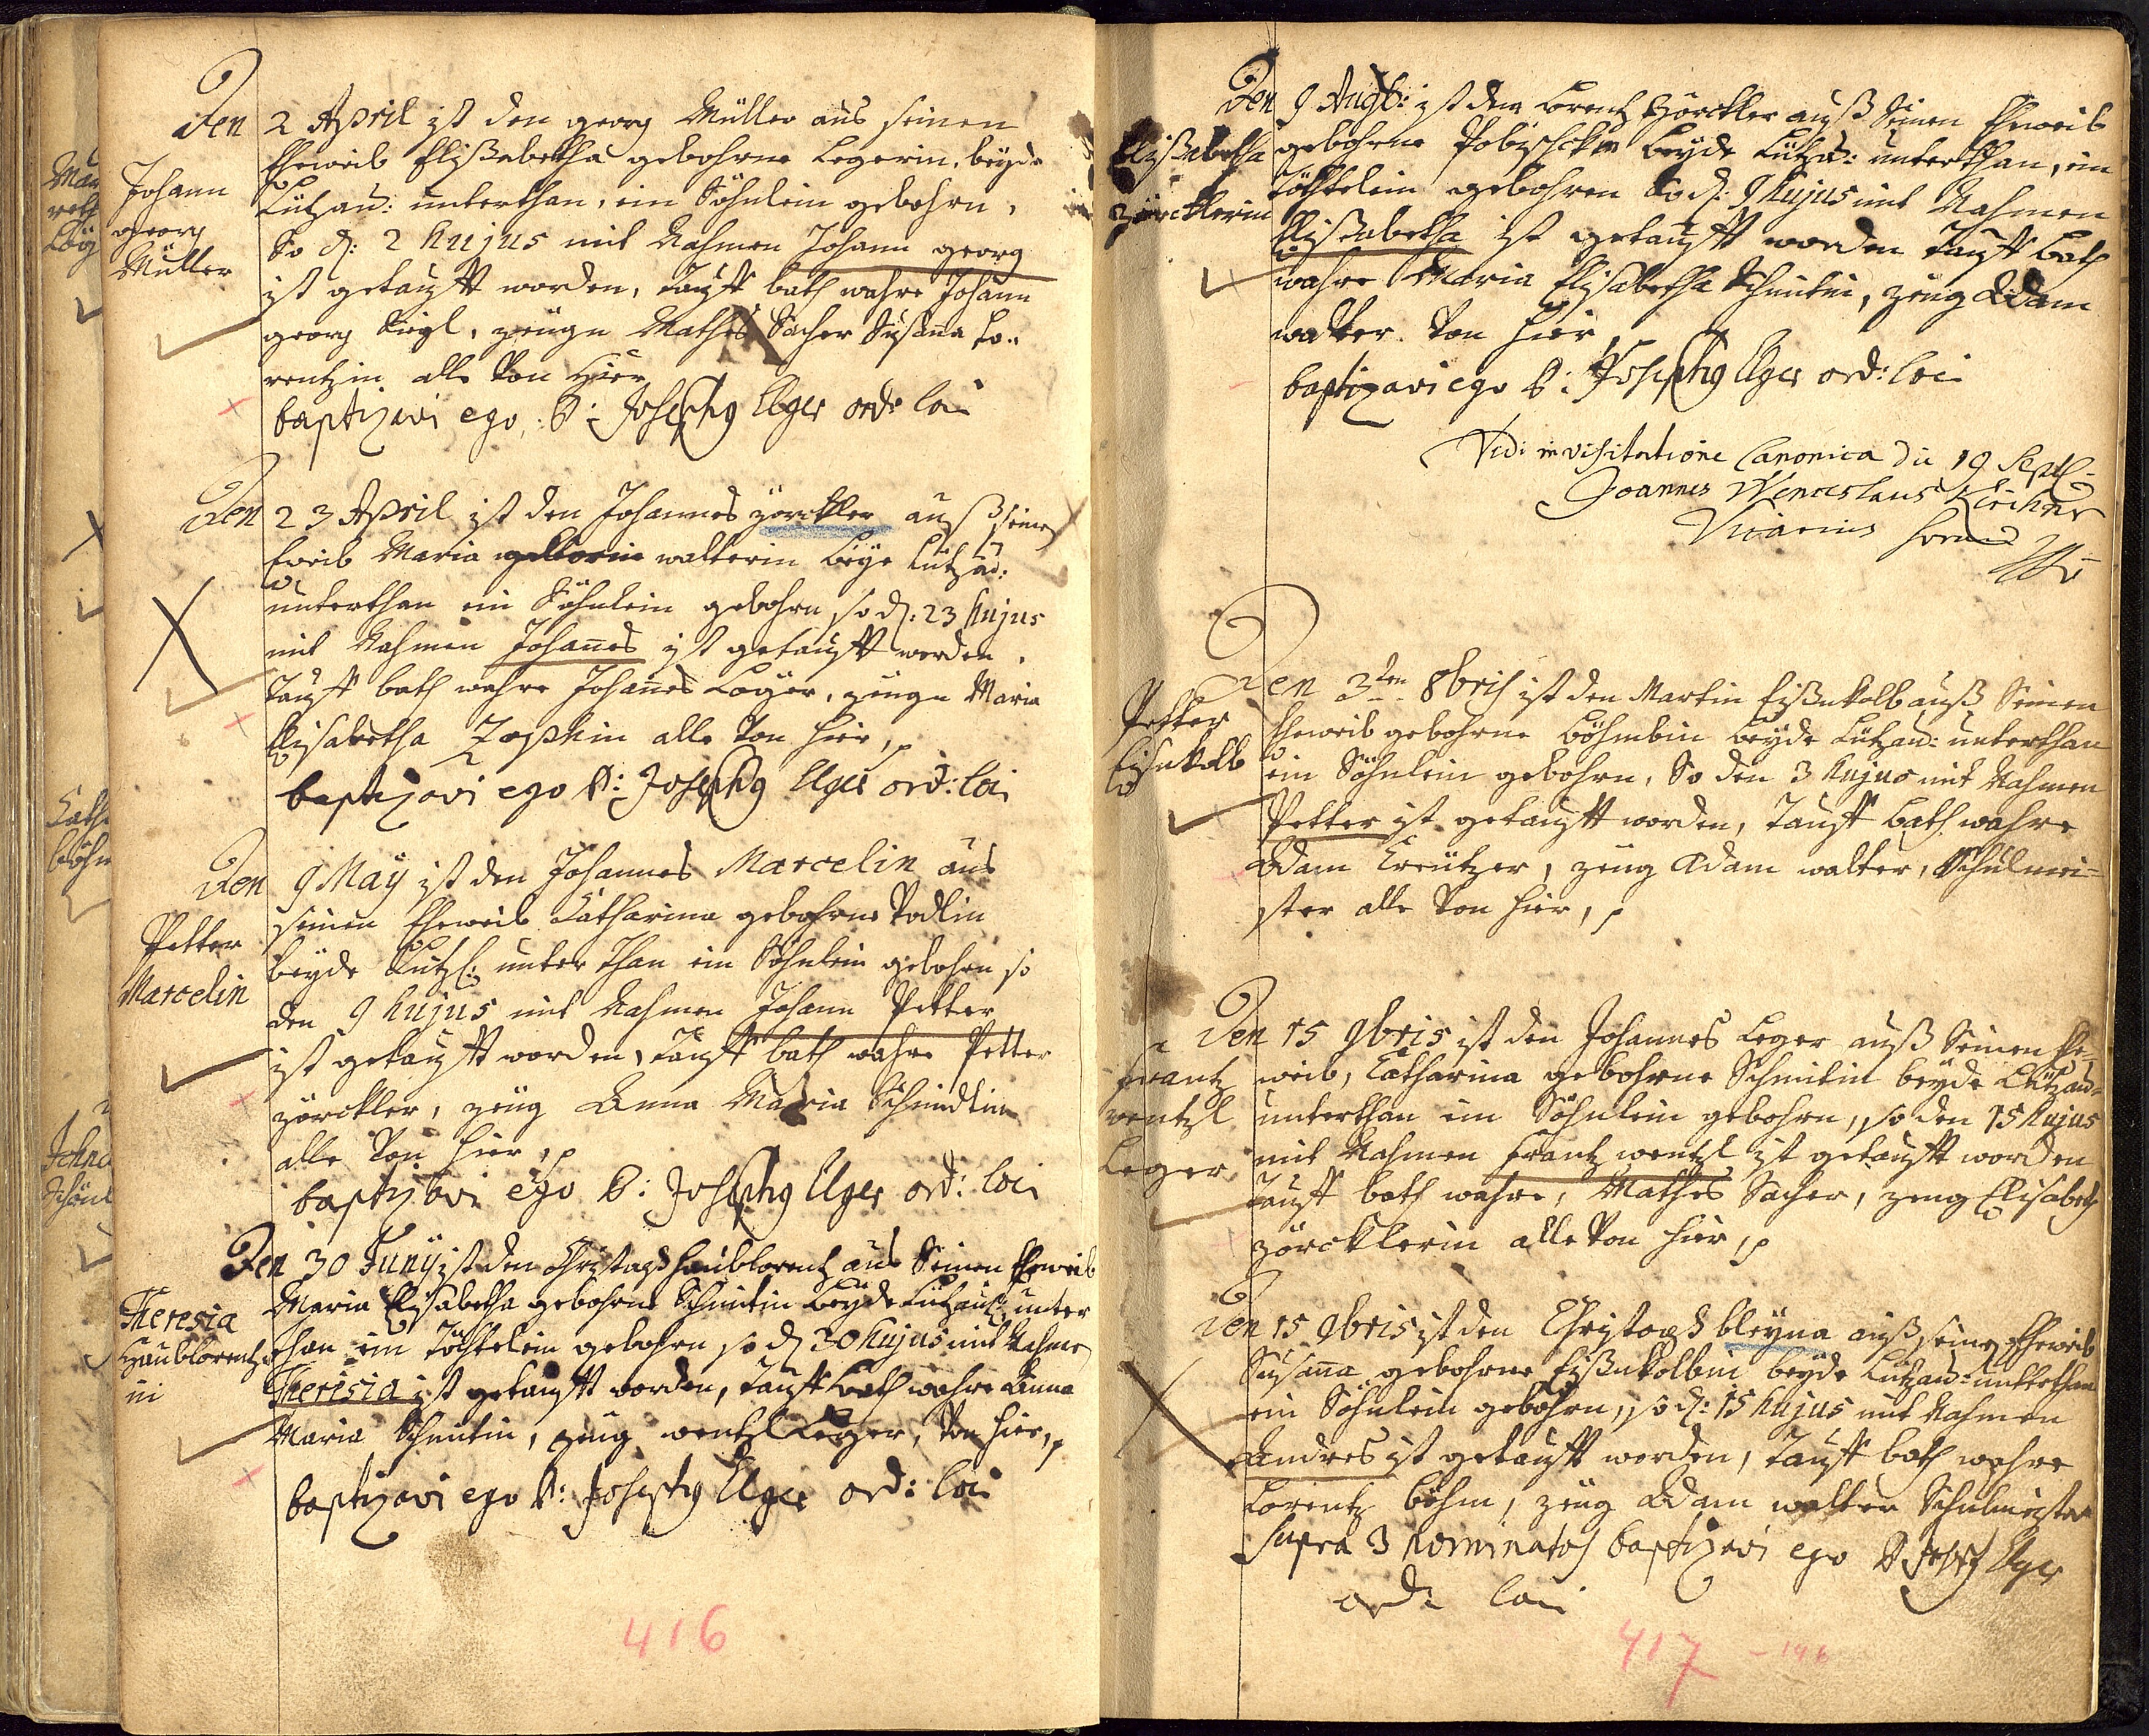 Den 2 April ist den georg Müller aus seinen
Eheweib Elisabetha gebohrne Legerin, beyde
Lützau: unterthan, ein Söhnlein gebohrn,
So d: 2 hujus mit Nahmen Johann georg
ist getaufft worden, tauff bath wahre Johann
georg, zeugen Mathes Sacher Susanna Lo-
rentzin alle Von Hier
baptizavi ego P: Josephg Elger ord: loci
Johann
georg
Müller
Den 23 April ist den Johannes zörckler auß seinen
Eweib Maria walterin beyde Lützau:
unterthan ein Söhnlein gebohrn, so d: 23 hujus
mit Nahmen Johannes ist getaufft worden,
Tauff bath wahre Johannes Leger, zeugen Maria
Elisabetha alle Von hier,
baptizavi ego P: Josephg Elger ord: loci
Den 9 May ist den Johannes Marcelin aus
seinen Eheweib Catharina gebohrne
beyde Lützl: unterthan ein Söhnlein gebohrn so
den 9 hujus mit Nahmen Johann Petter
ist getaufft worden, Tauff bath wahre Petter
zörckler, zeüg Anna Maria Schmidtin
alle Von hier,
baptizavi ego P: Josephg Elger ord: loci
Petter
Marcelin
Den 30 Juny ist den Christoph Haublorentz aus Seinen Eheweib
Maria Elisabetha gebohrne Schmitin beyde Lützau: unter
than ein Töchtelein gebohrn so d 30 hujus mit Nahmen
Therisia ist getaufft worden, Tauff bath wahre Anna
Maria Schmitin, zeug wentzl Leger, Von hier,
baptizavi ego P: Josephg Elger ord: loci
Theresia
Haublorentz
in
416
Den 9 Aug: ist dem Lorentz zörckler auß Seinen Eheweib
gebohrne beyde Lützau: unterthan, ein
Töchtelein gebohren So d: 9 hujus mit Nahmen
Elisabetha ist getaufft worden Tauff bath
wahre Maria Elisabetha Schmitin, zeug Adam
walter Von hier,
baptizavi ego P: Josephg Elger ord: loci
Elisabetha
zörcklerin
Vidi in visitatione Canonica die 19 Sept:
Joannes Wenceslaus Kirchner
Vicarius
Den 3ten 8bris ist den Martin Eißnkolb auß Seinen
Eheweib gebohrne Böhmbin beyde Lützau: unterthan
ein Söhnlein gebohrn, So den 3 hujus mit Nahmen
Petter ist getaufft worden, Tauff bath wahre
Adam Creützer, zeüg Adam walter, Schulmei-
ster alle Von hier,
Petter
Eisnkolb
Den 15 9bris ist den Johannes Leger auß Seinen Ehe-
weib, Catharina gebohrne Schmitin beyde Lützau-
unterthan ein Söhnlein gebohrn, so den 15 hujus
mit Nahmen Frantz wentzl ist getaufft worden
Tauff bath wahre, Mathes Sacher, zeug Elisabeth
zörcklerin alle Von hier,
Frantz
wentzl
Leger
Den 15 9bris ist den Christoph bleyna auß seinen Eheweib
Susanna gebohrne Eißnkolbin beyde Lützau: unterthan
ein Söhnlein gebohrn, so d: 15 hujus mit Nahmen
Andres ist getaufft worden, Tauff bath wahre
Lorentz böhm, zeüg Adam walter Schulmeister
Supra 3 nominatos baptizavi ego P Josephg Elger
ord: loci
417